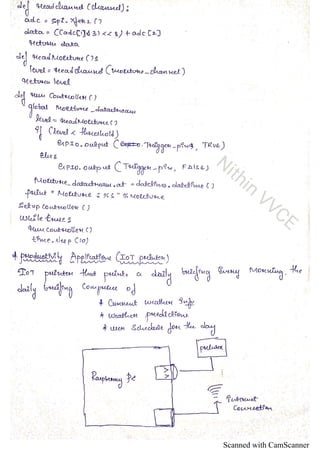 def readchannel (channel):
adc = spi. xfer2 (
data = ((adc[1]& 3) << 8) + adc [2]
return data
def readMoisture ():
level = readchannel (moisture_channel)
return level
def run Controller ()
global Moisture_datastream
level = readMoisture ()
if (level < threshold)
GPIO. output (Trigger_pins, TRUE)
else:
GPIO. output (Trigger_pin, FALSE)
Moisture_datastream.at = datetime.datetime ()
print " Moisture : %s " % Moisture
Setup controller ()
while true:
run controller ()
time. sleep (10)
* productivity Application (IoT printer)
IoT printer that prints a daily briefing every Morning. the
daily briefing comprise of
* Current weather info
* weather prediction
* user Schedule for the day
printer
Raspberry PC
Internet
Connection
Nithin VVCE
Scanned with CamScanner